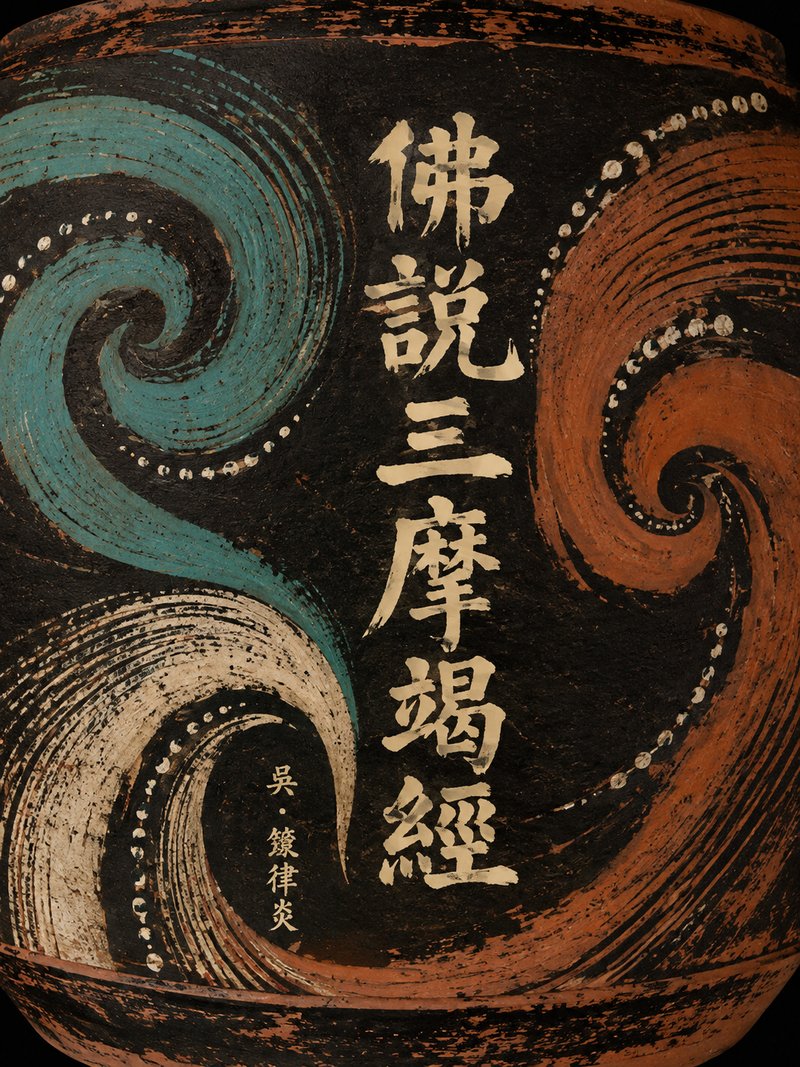 佛説三摩竭經
吳・律炎